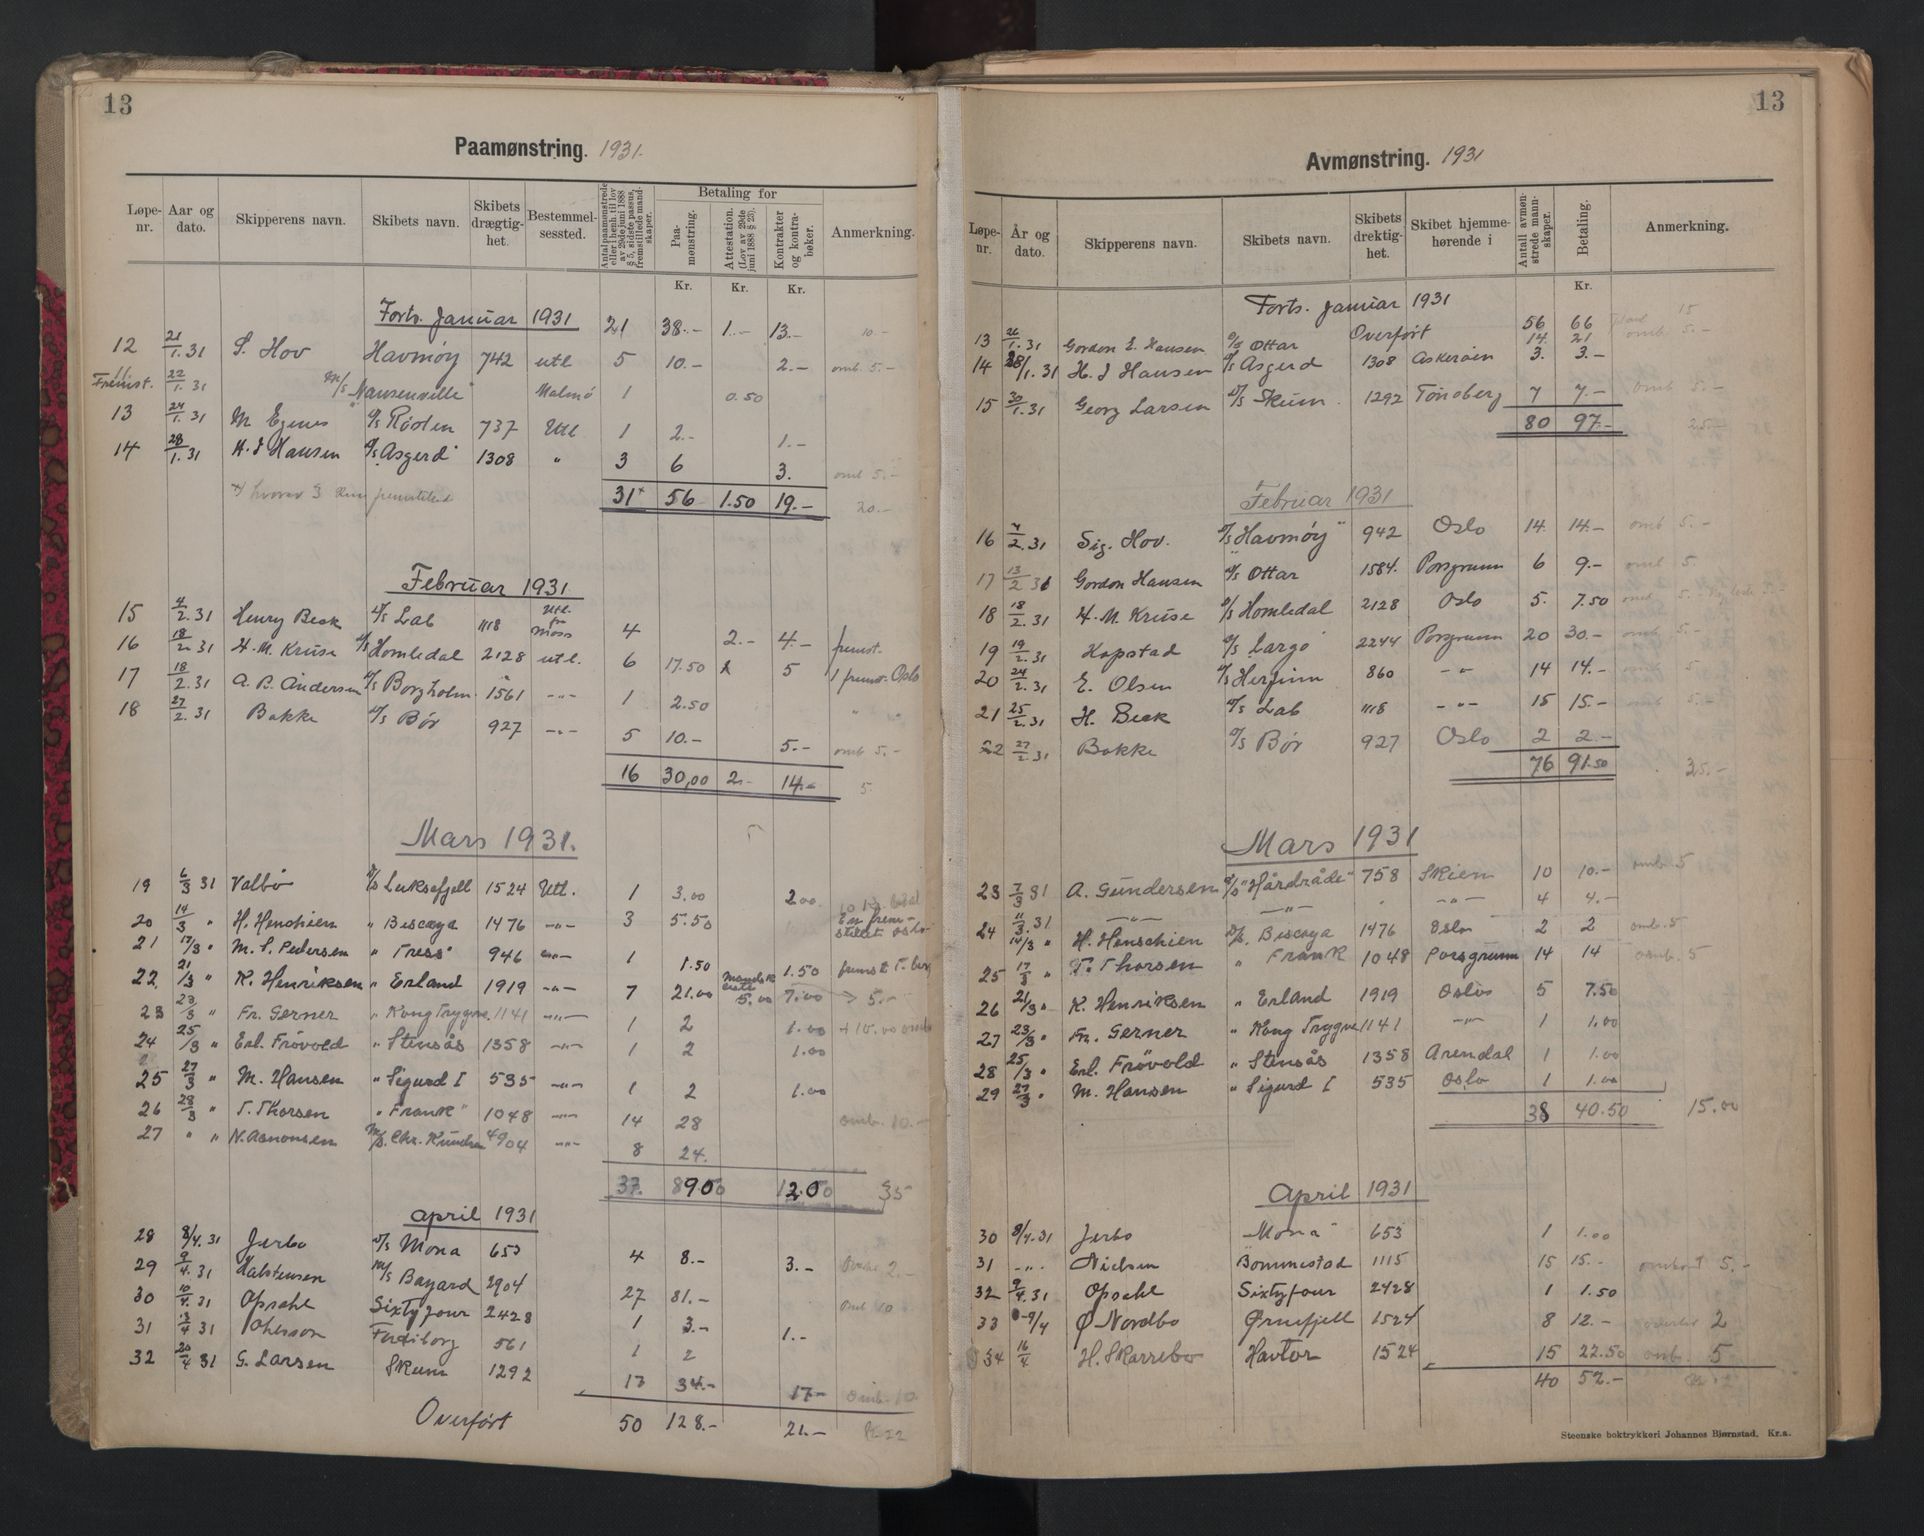 13
Paamønstring. 1931.
Løpe-nr. Aar og dato. Skipperens navn. Skibets navn. Skibets drægtig-het. Bestemmel-sessted. Antal paamønstrede eller i henh. til lov av 29de juni 1888 § 5, sidste passus, fremstillede mand-skaper. Betaling for Paa-mønstring. Attestation. (Lov av 29de juni 1888 § 23). Kontrakter og kontra-bøker. Anmerkning.
Kr. Kr. Kr.
Forts. Januar 1931 21 38.- 1.- 13.- 10.-
12 21/1.31 S. Hov Havmøy 742 utl 5 10.- 2.- omb 5.-
Fremst. 22/1.31 M/S Nansenville Malmø 1 0.50
13 24/1.31 M Egenes D/S Røsten 737 Utl 1 2.- 1.-
14 28/1.31 H. J Hansen D/S Asgerd 1308 " 3 6 3. omb 5.-
31 56 1.50 19.- 20.-
Februar 1931
15 4/2.31 Henry Beck D/S Lab 1118 Utl. fra Moss 4 2.- 4.- fremst.
16 18/2.31 H. M. Kruse D/S Homledal 2128 utl. 6 17.50 5 1 fremst. Oslo
17 18/2.31 A. B. Andersen D/S Borgholm 1561 -"- 1 2.50 " "
18 27/2.31 Bakke D/S Bør 927 -"- 5 10.- 5.- omb 5.-
16 30,00 2.- 14.- 5.
Mars 1931.
19 6/3 31 Valbø D/S Luksefjell 1524 Utl. 1 3.00 2.00
20 14/3 " H. Henschien " Biscaya 1476 -"- 3 5.50 En frem-stillet Oslo
21 17/3 " M. S. Pedersen " Tress 946 -"- 1 1.50 1.50 fremst T. berg
22. 21/3 " K. Henriksen " Erland 1919 -"- 7 21.00 5.00 7.00 5.-
23 23/3 " Fr. Gerner " Kong Trygve 1141 -"- 1 2 1.00 + 10.00 omb
24 25/3 " Erl. Frövold " Stensås 1358 -"- 1 2 1.00
25 27/3 " M. Hansen " Sigurd I 535 -"- 1 2 1.00
26 28/3 " T. Thorsen " Frank" 1048 -"- 14 28 omb. 10.-
27 " " N. Asmonsen M/S. Chr. Knudsen 4904 -"- 8 24.
37. 89.00 12.00 35
April 1931
28 8/4.31 Jerbo D/S Mona 653 4 8.- 3.- 2.-
29 9/4.31 Halstensen M/S Bayard 2904 27 81.- omb 10
30 10/4.31 Opsahl Sixtyfour 2428 1 3.- 1.-
31 13/4 31 Ohlsson Ferdiborg 561 1 2
32 20/4 31 G. Larsen Skum 1292 17 34.- 17.- omb. 10
Overført 50 128.- 21.- 22
13
Avmønstring. 1931
Løpe-nr. År og dato. Skipperens navn. Skibets navn. Skibets drektig-het. Skibet hjemme-hørende i Antall avmøn-strede mann-skaper. Betaling. Anmerkning.
Kr.
Forts. Januar 1931
Overført 56 66 15
13 26/1.31 Gordon E. Hansen D/S Ottar 14. 21 omb. 5.-
14 28/1.31 H. J Hansen D/S Asgerd 1308 Askerøien 3. 3.-
15 30/1.31 Georg Larsen D/S Skum. 1292 Tönsberg 7 7.- omb 5.-
80 97.- 25.-
Februar 1931
16 4/2.31 Sig. Hov. D/S "Havmøy" 942 Oslo 14. 14.- omb 5.-
17 13/2 31 Gordon Hansen D/S Ottar 1584. Porsgrunn 6 9.- omb 5.
18 18/2.31 H. M. Kruse D/S Homledal 2128 Oslo 5. 7.50 omb 5.-
19 19/2.31 Hopstad D/S Largo 2244 Porsgrunn 20 30.- omb 5.-
20 24/2.31 E. Olsen D/S Herfinn 860 -"- 14 14.- omb 5.
21 25/2.31 H. Beck D/S Lab 1118 -"- 15 15.- omb 5.-
22 27/2.31 Bakke D/S Bør 927 Oslo 2 2.-
76 91.50 35.-
Mars 1931
23 7/3 31 A. Gundersen D/S "Hårdråde" 758 Skien 10 10.- omb. 5
24 11/3.31 -"- -"- " -"- 4 4.-
14/3 " H. Henschien D/S. Biscaya 1476 Oslo 2 2 omb. 5
25 17/3 " T. Thorsen " Frank 1048 Porsgrunn 14 14 omb. 5
26 21/3 " K. Henriksen " Erland 1919 Oslo 5 7.50
27 23/3 " Fr. Gerner " Kong Trygve 1141 -"- 1 1.00
28 25/3 " Erl. Frövold " Stensås 1358 Arendal 1 1.00
29 27/3 " M. Hansen " Sigurd I 535 Oslo 1 1.00
38 40.50 15.00
April 1931
30 8/4.31 Jerbo Mona 653 1 1.00
31 -"- Nielsen Bommestad 1115 15 15.- ombord 5.-
32 9/4.31 Opsahl Sixtyfour 2428 1 1.50
33 9/4 Ø Nordbo Ørnefjell 1524 8 12.- 2
34 16/4 H. Skarrebo Havtor 1524 15 22.50 omb. 5
40 52.-
Steenske boktrykkeri Johannes Bjørnstad. Kr.a.